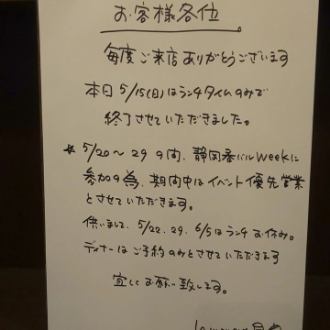 お客様各位。
毎度ご来店ありがとうございます
本日5/15(日)はランチタイムのみで
終了させていただきました。
★5/20〜29の間、静岡春バルweekに
参加の為、期間中はイベント優先営業
とさせていただきます。
供いまして、5/22、29、6/5はランチお休み。
ディナーはご予約のみとさせていただきます
宜しくお願い致します。